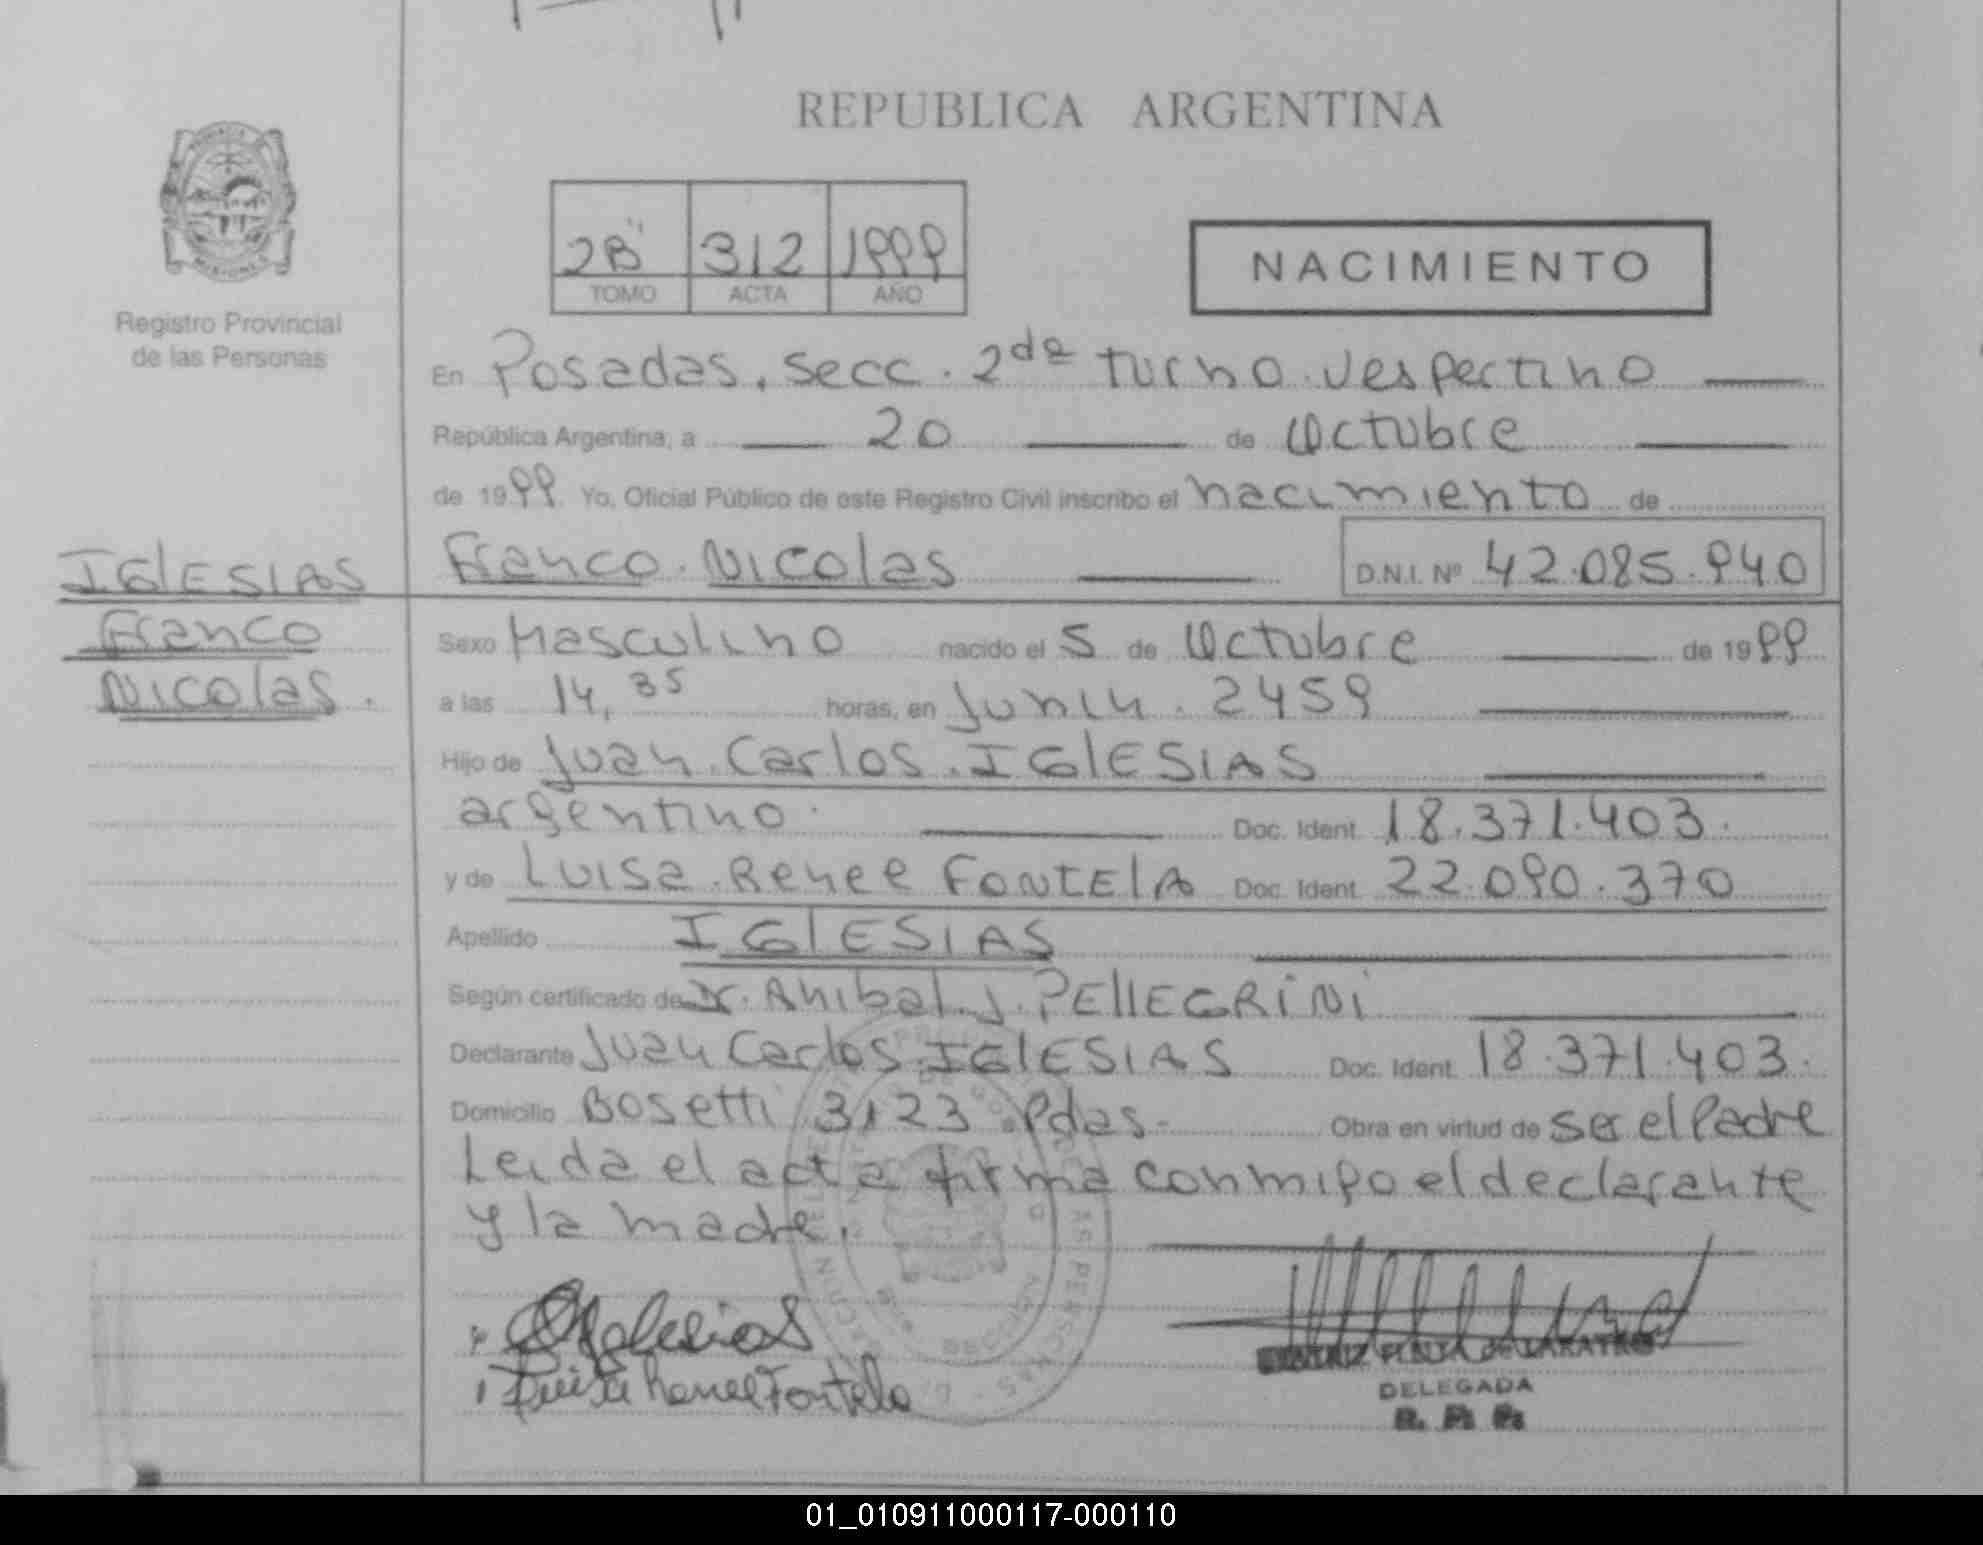 REPUBLICA ARGENTINA
MISIONES
Registro Provincial
de las Personas
2B" 312 1999
TOMO ACTA AÑO
NACIMIENTO
En Posadas, secc. 2da turno vespertino
República Argentina, a 20 de Octubre
de 1999. Yo, Oficial Público de este Registro Civil inscribo el nacimiento de
Franco Nicolas D.N.I. Nº 42.085.940
IGLESIAS
Franco
Nicolas.
Sexo Masculino nacido el 5 de Octubre de 1999
a las 14,35 horas, en Junin. 2459
Hijo de Juan Carlos IGLESIAS
argentino. Doc. Ident. 18.371.403.
y de Luisa Renee FONTELA Doc. Ident. 22.090.370
Apellido IGLESIAS
Según certificado de Dr. Anibal J. PELLEGRINI
Declarante Juan Carlos IGLESIAS Doc. Ident. 18.371.403.
Domicilio Bosetti 3123 Pdas. Obra en virtud de ser el Padre
Leida el acta firma conmigo el declarante
y la madre.
Iglesias
Luisa Renee Fontela
DELEGADA
01_010911000117-000110